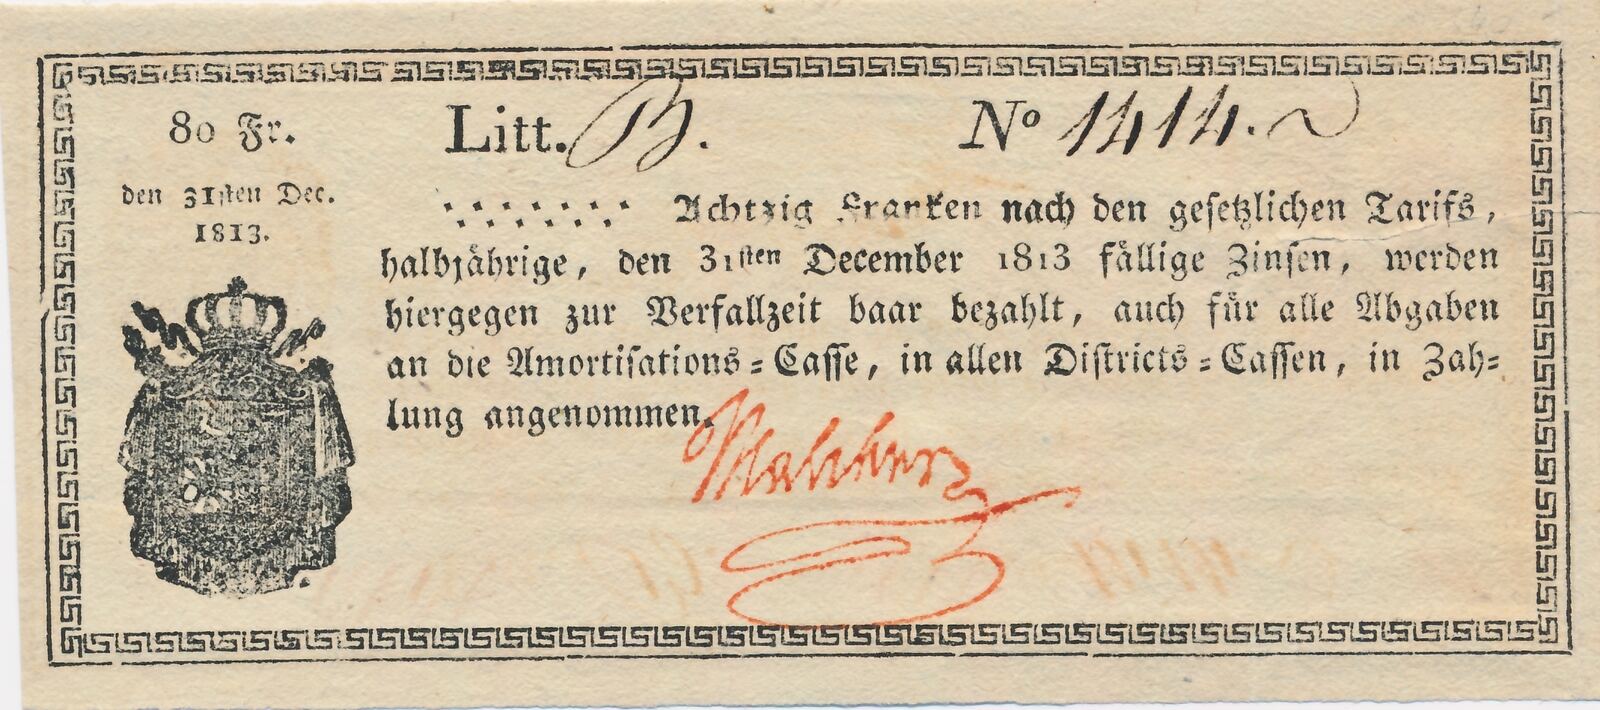 80 Fr. Litt. B. No 1414.
den 31sten Dec.
1813.
Achtzig Franken nach den gesetzlichen Tarifs,
halbjährige, den 31sten December 1813 fällige Zinsen, werden
hiergegen zur Verfallzeit baar bezahlt, auch für alle Abgaben
an die Amortisations=Casse, in allen Districts=Cassen, in Zah=
lung angenommen.